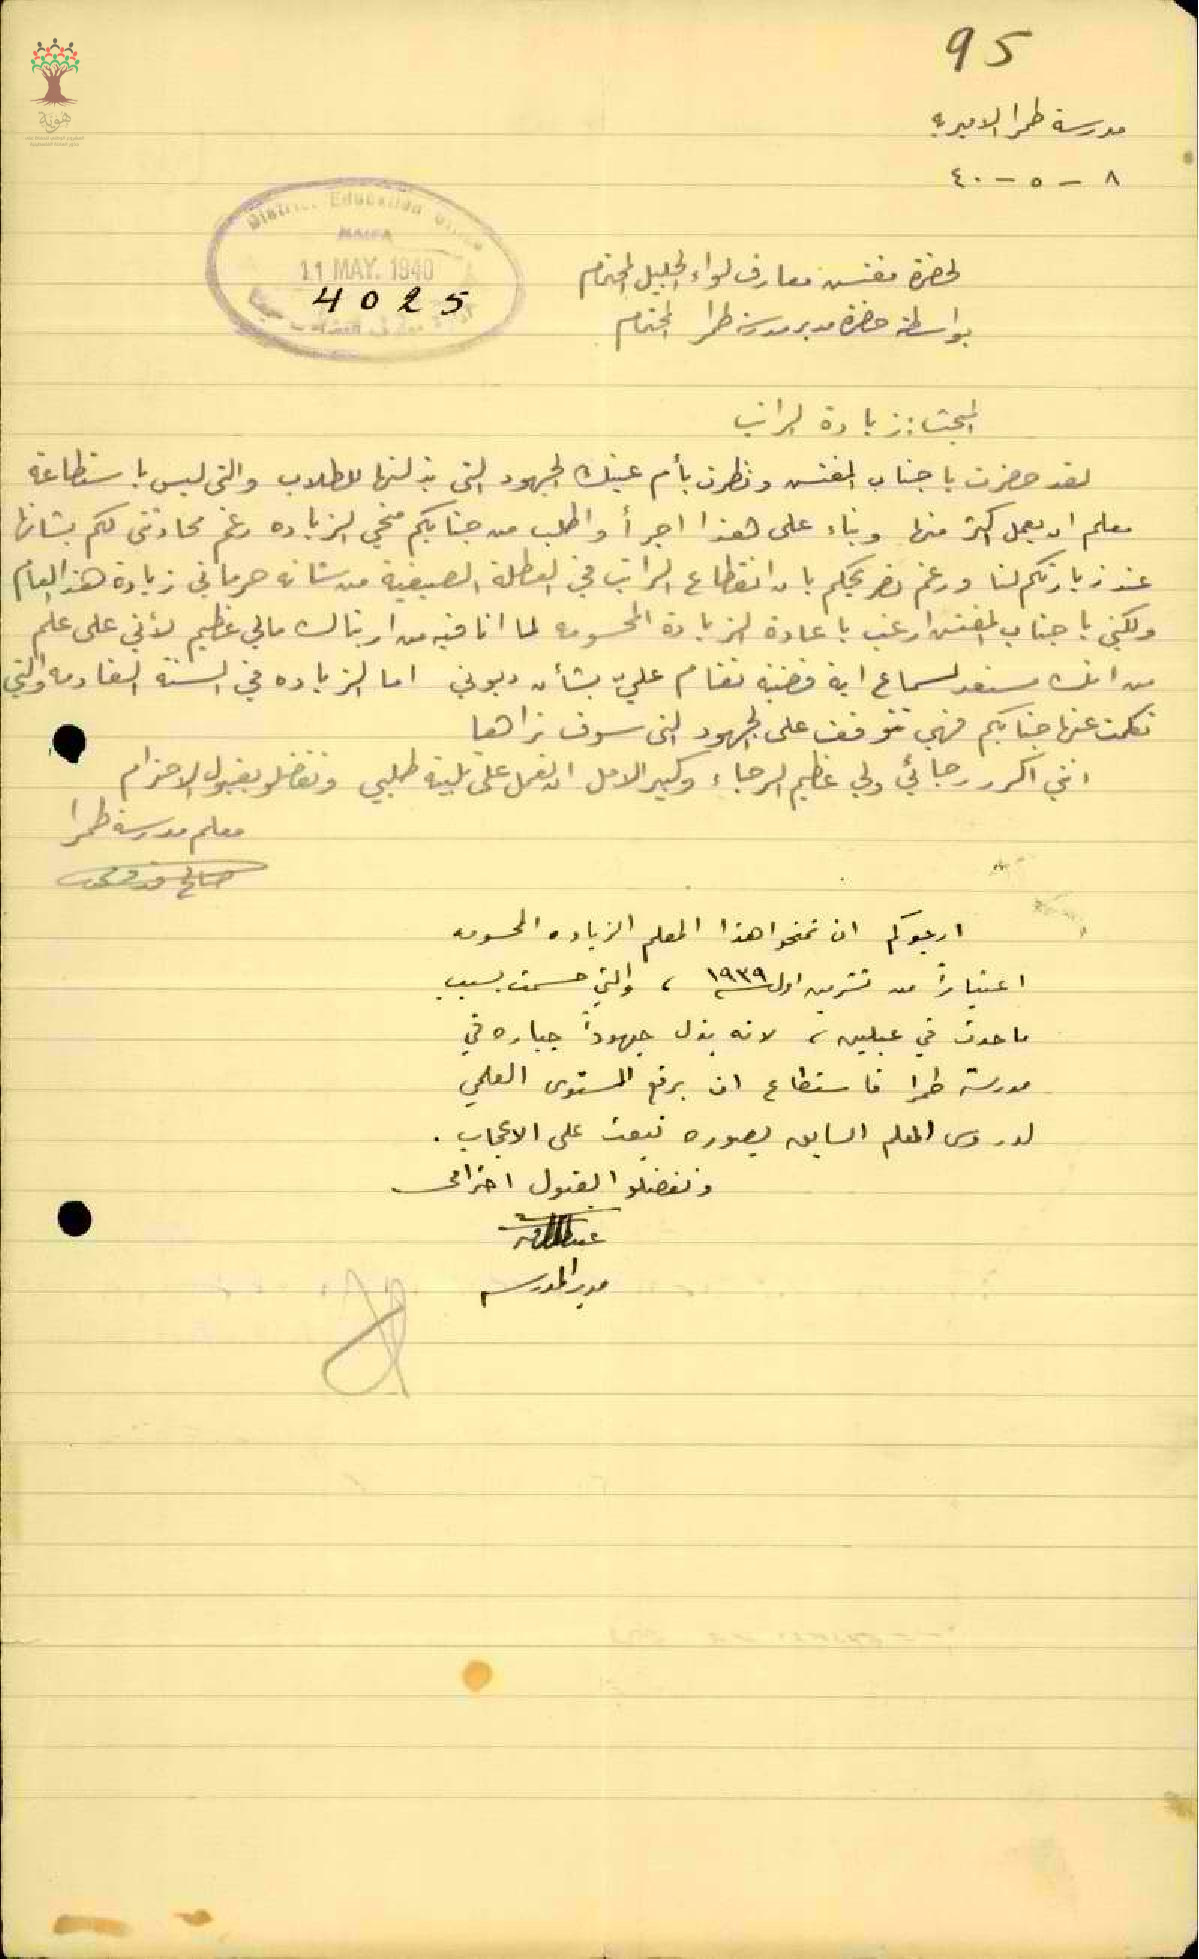 95
مدرسة طمرا الاميريه
٨ - ٥ - ٤٠
District Education Office
HAIFA
11 MAY. 1940
4025
لحضرة مفتش معارف لواء الجليل المحترم
بواسطة حضرة مدير مدرسة طمرا المحترم
المبحث: زيادة الراتب
لقد حضرت يا جناب المفتش ونظرت بأم عينك الجهود التي بذلتها للطلاب والتي ليس باستطاعة
معلم ان يعمل اكثر منها وبناء على هذا اجرأ واطلب من جنابكم منحي الزياده رغم محادثتي لكم بشانها
عند زيارتكم لنا ورغم تصريحكم بان انقطاع الراتب في العطلة الصيفية من شانه حرماني زيادة هذا العام
ولكني يا جناب المفتش ارغب باعادة الزيادة المحسومه لما انا فيه من ارتباك مالي عظيم لأني على علم
من انك مستعد لسماع اية قضية تقام عليّ بشأن ديوني اما الزياده في السنة القادمه والتي
تكلمت عنها جنابكم فهي تتوقف على الجهود التي سوف تراها
انني اكرر رجائي ولي عظيم الرجاء وكبير الامل ان تعمل على تلبية طلبي وتفضلوا بقبول الاحترام
معلم مدرسة طمرا
ارجوكم ان تمنحوا هذا المعلم الزياده المحسومه
اعتباراً من تشرين اول سنة ١٩٣٩ ، والتي حسمت بسبب
ما حدث في عبلين ، لانه بذل جهوداً جباره في
مدرسة طمرا فاستطاع ان يرفع المستوى العلمي
لدروس المعلم السابق بصوره تبعث على الاعجاب .
وتفضلوا بقبول احترامي
مدير المدرسه